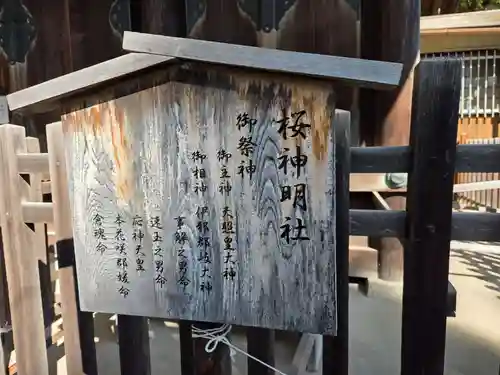 桜神明社
御祭神
御主神 天照皇大神
御相神 伊那那岐大神
事解之男命
速玉之男命
応神天皇
木花咲耶媛命
倉魂命